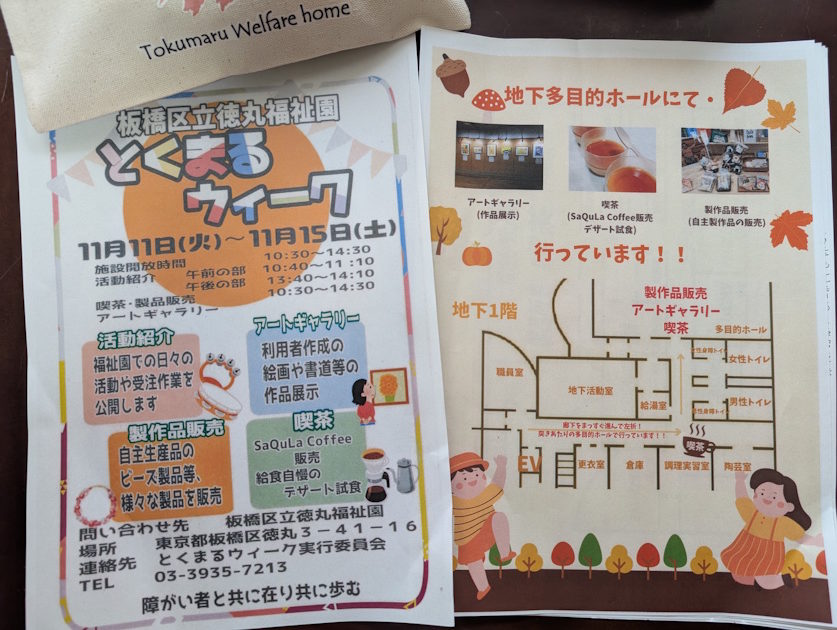 Tokumaru Welfare home
板橋区立徳丸福祉園
とくまる
ウィーク
11月11日(火)~11月15日(土)
施設開放時間 10:30~14:30
活動紹介 午前の部 10:40~11:10
午後の部 13:40~14:10
喫茶・製品販売 10:30~14:30
アートギャラリー
活動紹介
福祉園での日々の
活動や受注作業を
公開します
アートギャラリー
利用者作成の
絵画や書道等の
作品展示
製作品販売
自主生産品の
ビーズ製品等、
様々な製品を販売
喫茶
SaQuLa Coffee
販売
給食自慢の
デザート試食
問い合わせ先 板橋区立徳丸福祉園
場所 東京都板橋区徳丸3-41-16
連絡先 とくまるウィーク実行委員会
TEL 03-3935-7213
障がい者と共に在り共に歩む
地下多目的ホールにて・
アートギャラリー
(作品展示)
喫茶
(SaQuLa Coffee販売
デザート試食)
製作品販売
(自主製作品の販売)
行っています!!
地下1階
製作品販売
アートギャラリー
喫茶
多目的ホール
職員室
地下活動室
給湯室
女性身障トイレ
女性トイレ
男性身障トイレ
男性トイレ
廊下をまっすぐ進んで左折!
突きあたりの多目的ホールで行っています!!
喫茶
EV
更衣室
倉庫
調理実習室
陶芸室